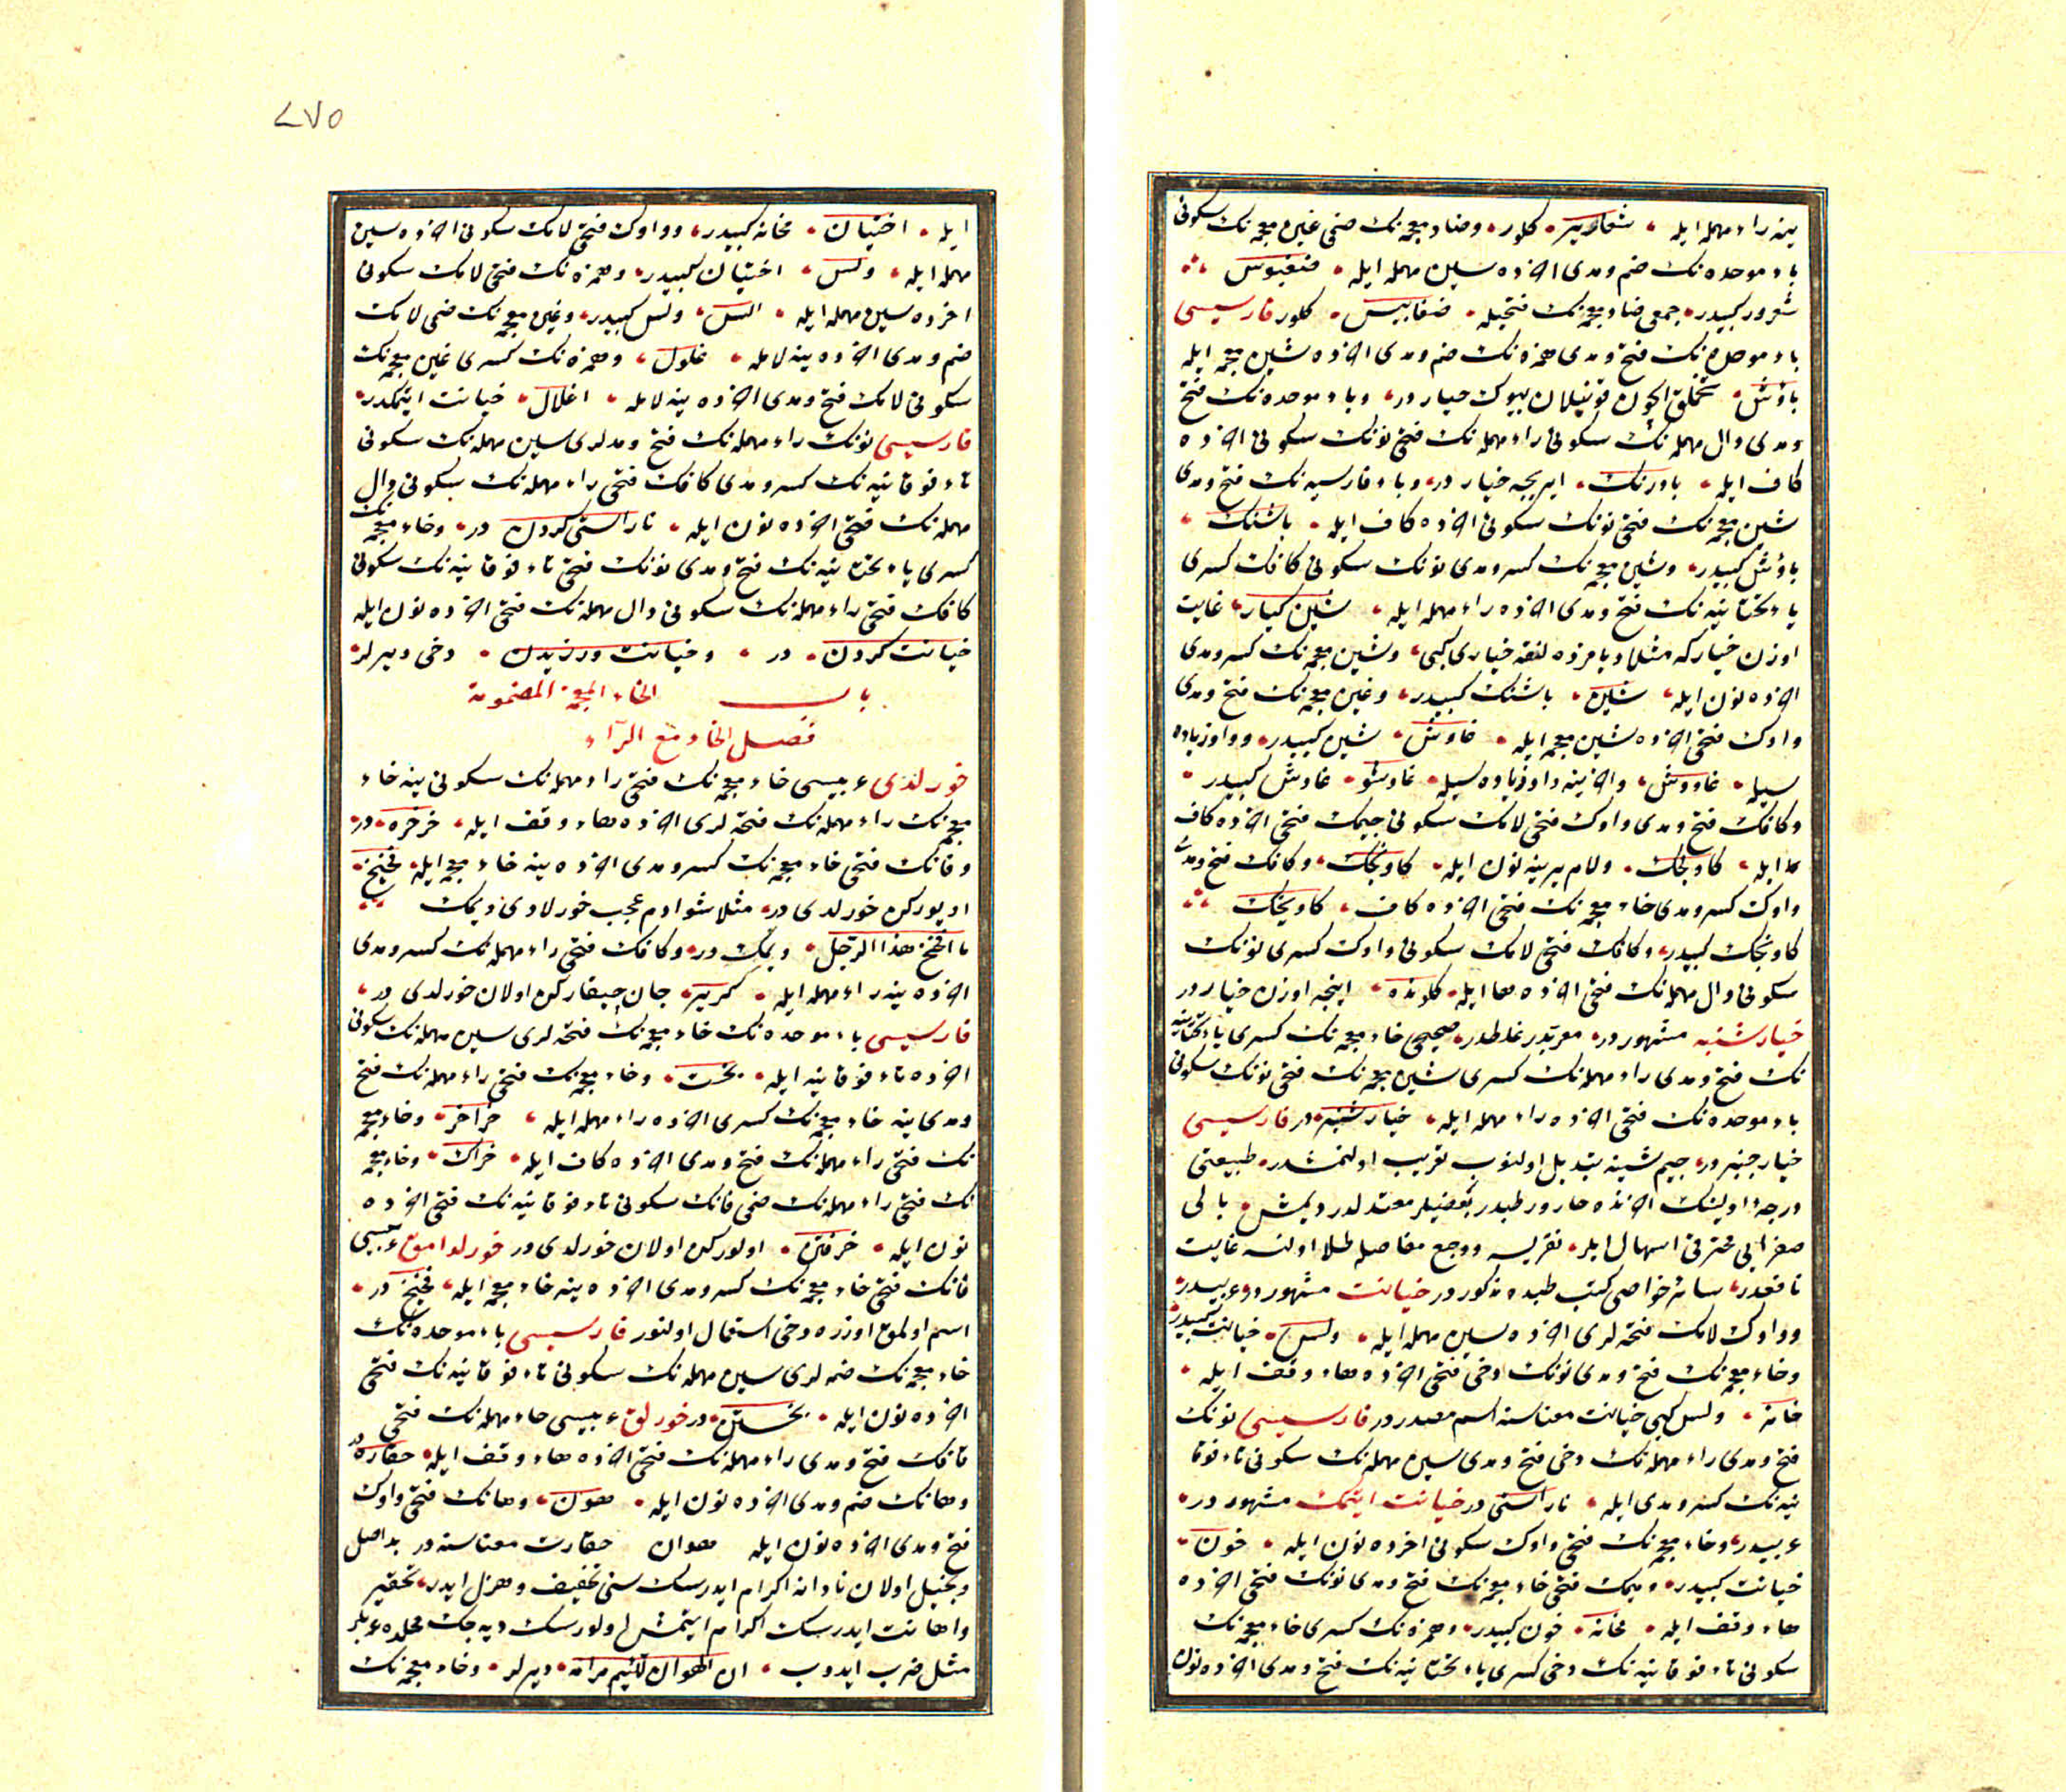 ینه راء مهمله ایله شعاریر کلور وضاد معجمه نك ضمی غین معجمه نك سکونی
باء موحده نك ضم ومدی اخرده سین مهمله ایله ضغبوس
شعرور کبیدر جمعی ضاد معجمه نك فتحیله ضغابیس کلور فارسیسی
باء موحده نك فتح ومدی همزه نك ضم ومدی اخرده شین معجمه ایله
باؤش تخملق ایچون قونیلان بیوك خیار در وباء موحده نك فتح
ومدی دال مهمله نك سکونی راء مهمله نك فتحی نونك سکونی اخرده
کاف ایله بادرنك ایریجه خیار در وباء فارسیه نك فتح ومدی
شین معجمه نك فتحی نونك سکونی اخرده کاف ایله باشنك
باؤش کبیدر وشین معجمه نك کسر ومدی نونك سکونی کافك کسری
یاء تحتانیه نك فتح ومدی اخرده راء مهمله ایله شین کیار غایت
اوزن خیار که مثلا دیامزده لنقه خیاری کبی وشین معجمه نك کسر ومدی
اخرده نون ایله شین باشنك کبیدر وغین معجمه نك فتح ومدی
واوك فتحی اخرده شین معجمه ایله غاوش شین کبیدر وواو زیاده
سیله غاووش واخرینه واو زیاده سیله غاوشو غاوش کبیدر
وکافك فتح ومدی واوك فتحی لامك سکونی جیمك فتحی اخرده کاف
ایله کاولجك ولام یرینه نون ایله کاونجك وکافك فتح ومدی
واوك کسر ومدی خاء معجمه نك فتحی اخرده کاف کاویخك
کاونجك کبیدر وکافك فتحی لامك سکونی واوك کسری نونك
سکونی دال مهمله نك فتحی اخرده ها ایله کلونده اینجه اوزن خیار در
خیارشنبه مشهور در معربدر غلطدر صحیحی خاء معجمه نك کسری یاء تحتانیه
نك فتح ومدی راء مهمله نك کسری شین معجمه نك فتحی نونك سکونی
باء موحده نك فتحی اخرده راء مهمله ایله خیارشنبر در فارسیسی
خیار جنبر در جیم شینه تبدیل اولنوب تعریب اولنمشدر طبیعتی
درجۀ اولینك اخرنده حار ورطبدر بعضیلر معتدلدر دیمش بالی
صفرا یی محترقی اسهال ایلر نقریسه ووجع مفاصله طلا اولنسه غایت
نافعدر سائر خواصی کتب طبده مذکور در خیانت مشهور در عربیدر
وواوك لامك فتحه لری اخرده سین مهمله ایله ولس خیانت کبیدر
وخاء معجمه نك فتح ومدی نونك دخی فتحی اخرده هاء وقف ایله
خانه ولس کبی خیانت معناسنه اسم مصدر در فارسیسی نونك
فتح ومدی راء مهمله نك دخی فتح ومدی سین مهمله نك سکونی تاء فوقا
نیه نك کسر ومدی ایله ناراستی در خیانت ایتمك مشهور در
عربیدر وخاء معجمه نك فتحی واوك سکونی اخرده نون ایله خون
خیانت کبیدر ومیمك فتحی خاء معجمه نك فتح ومدی نونك فتحی اخرده
هاء وقف ایله مخانه خون کبیدر وهمزه نك کسری خاء معجمه نك
سکونی تاء فوقانیه نك دخی کسری یاء تحتانیه نك فتح ومدی اخرده نون
٤٧٥
ایله اختیان مخانه کبیدر وواوك فتحی لامك سکونی اخرده سین
مهمله ایله ولس اختیان کبیدر وهمزه نك فتحی لامك سکونی
اخرده سین مهمله ایله الس ولس کبیدر وغین معجمه نك ضمی لامك
ضم ومدی اخرده ینه لامله غلول وهمزه نك کسری غین معجمه نك
سکونی لامك فتح ومدی اخرده ینه لامله اغلال خیانت ایتمکدر
فارسیسی نونك راء مهمله نك فتح ومدلری سین مهمله نك سکونی
تاء فوقانیه نك کسر ومدی کافك فتحی راء مهمله نك سکونی دال
مهمله نك فتحی اخرده نون ایله ناراستی کردن در وخاء معجمه نك
کسری یاء تحتانیه نك فتح ومدی نونك فتحی تاء فوقانیه نك سکونی
کافك فتحی راء مهمله نك سکونی دال مهمله نك فتحی اخرده نون ایله
خیانت کردن در وخیانت ورزیدن دخی دیرلر
باب الخاء المعجمة المضمومة
فصل الخاء مع الراء
خورلدی عربیسی خاء معجمه نك فتحی راء مهمله نك سکونی ینه خاء
معجمه نك راء مهمله نك فتحه لری اخرده هاء وقف ایله خرخره در
وفانك فتحی خاء معجمه نك کسر ومدی اخرده ینه خاء معجمه ایله فخیخ
اویورکن خورلدی در مثلا شو ادم عجب خورلادی دیمك
ما افخ هذا الرجل دیمك در وکافك فتحی راء مهمله نك کسر ومدی
اخرده ینه راء مهمله ایله کریر جان چیقارکن اولان خورلدی در
فارسیسی باء موحده نك خاء معجمه نك فتحه لری سین مهمله نك سکونی
اخرده تاء فوقانیه ایله بخست وخاء معجمه نك فتحی راء مهمله نك فتح
ومدی ینه خاء معجمه نك کسری اخرده راء مهمله ایله خراخر وخاء معجمه
نك فتحی راء مهمله نك فتح ومدی اخرده کاف ایله خراك وخاء معجمه
نك فتحی راء مهمله نك ضمی فانك سکونی تاء فوقانیه نك فتحی اخرده
نون ایله خرفتن اولورکن اولان خورلدی در خورلدامق عربیسی
فانك فتحی خاء معجمه نك کسر ومدی اخرده ینه خاء معجمه ایله فخیخ در
اسم اولمق اوزره دخی استعمال اولنور فارسیسی باء موحده نك
خاء معجمه نك ضمه لری سین مهمله نك سکونی تاء فوقانیه نك فتحی
اخرده نون ایله بخستن در خورلق عربیسی حاء مهمله نك فتحی
قافك فتح ومدی راء مهمله نك فتحی اخرده هاء وقف ایله حقاره در
وهانك ضم ومدی اخرده نون ایله هون وهانك فتحی واوك
فتح ومدی اخرده نون ایله هوان حقارت معناسنه در بد اصل
وبخیل اولان نادانه اکرام ایدرسك سنی تخفیف وهزل ایدر تحقیر
واهانت ایدرسك اکرام ایتمش اولورسك دیه جك محلده عربلر
مثل ضرب ایدوب ان الهوان للئیم مرامه دیرلر وخاء معجمه نك